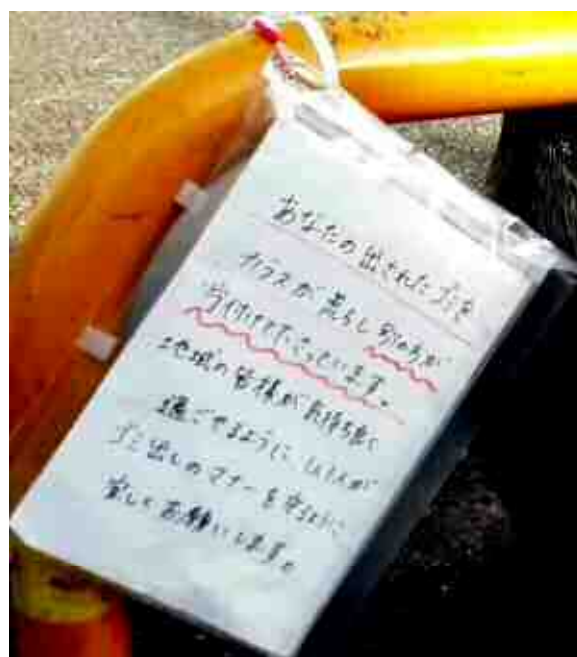 あなたの出されたゴミを
カラスが荒らし
片付けを行っています。
地域の皆様が気持ち良く
過ごせるように、1人1人が
ゴミ出しのマナーを守るように
宜しくお願いします。